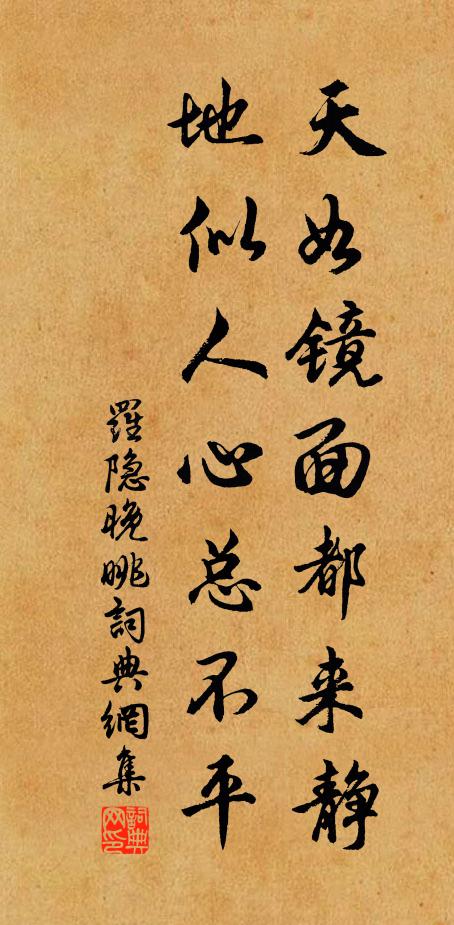 天如镜面都来静
地似人心总不平
羅隐晚眺詞典網集
詞典网印